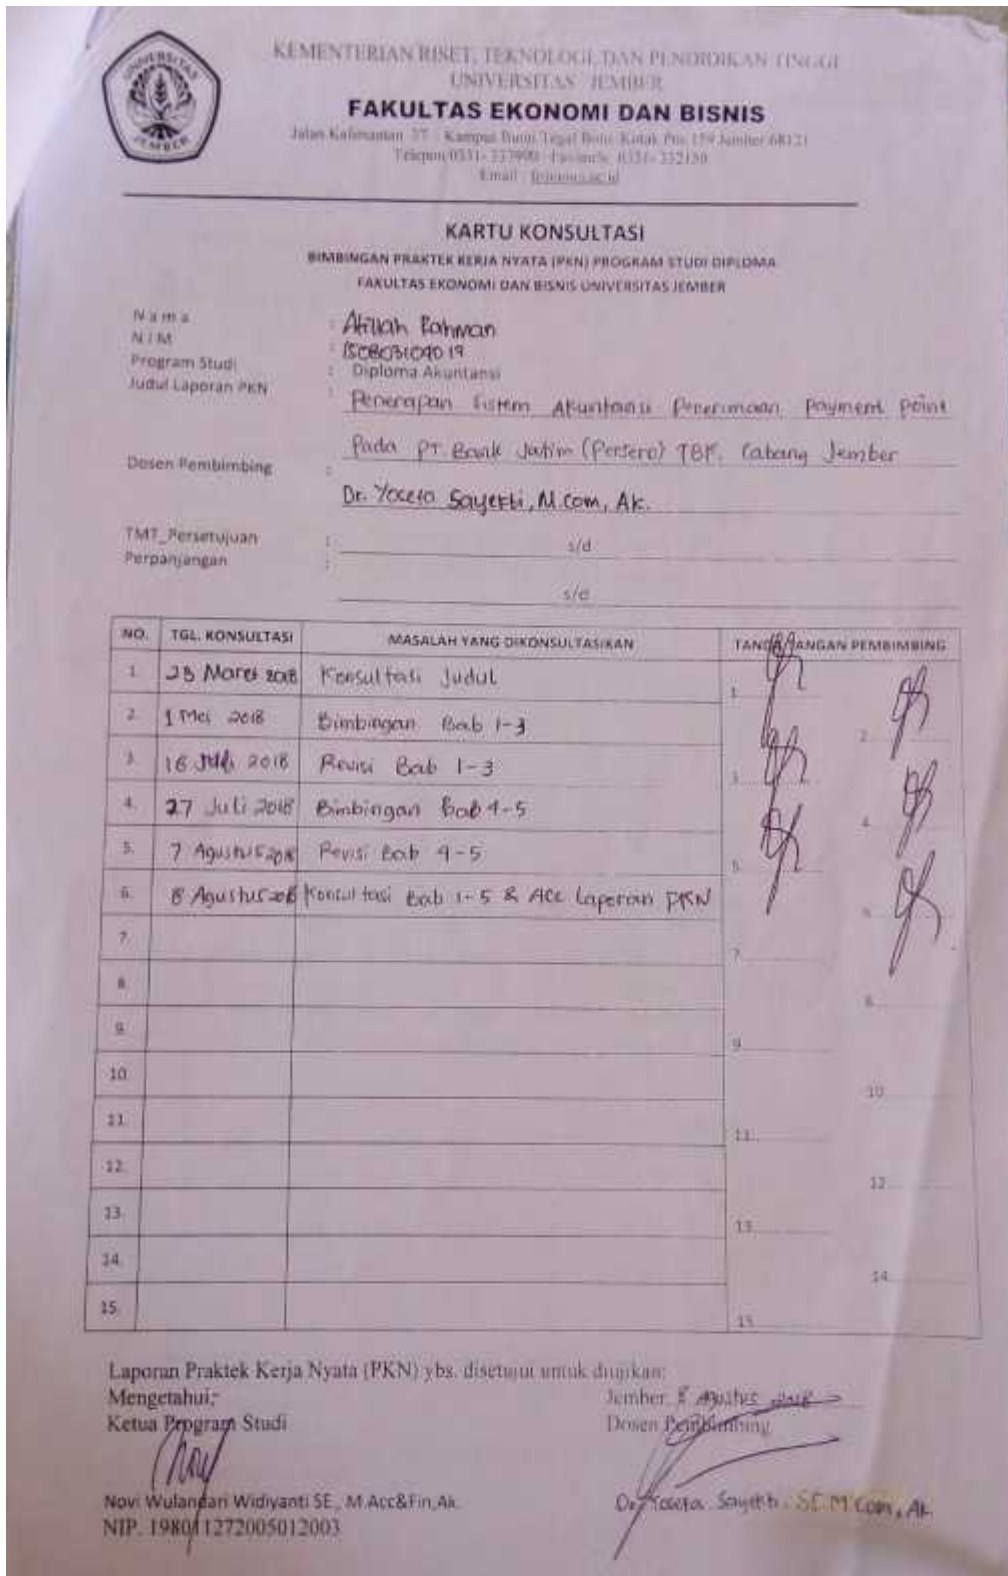 UNIVERSITAS
JEMBER
KEMENTERIAN RISET, TEKNOLOGI, DAN PENDIDIKAN TINGGI
UNIVERSITAS JEMBER
FAKULTAS EKONOMI DAN BISNIS
Jalan Kalimantan 37 - Kampus Bumi Tegal Boto Kotak Pos 159 Jember 68121
Telepon 0331- 337990 Facsimile 0331- 332150
Email :
KARTU KONSULTASI
BIMBINGAN PRAKTEK KERJA NYATA (PKN) PROGRAM STUDI DIPLOMA
FAKULTAS EKONOMI DAN BISNIS UNIVERSITAS JEMBER
Nama : Rahman
NIM : 150803104019
Program Studi : Diploma Akuntansi
Judul Laporan PKN : Penerapan Sistem Akuntansi Penerimaan Payment Point
Pada PT Bank Jatim (Persero) TBK. Cabang Jember
Dosen Pembimbing :
Dr. Yoseta Sayekti, M.Com, Ak.
TMT_Persetujuan : s/d
Perpanjangan :
s/d
NO. TGL. KONSULTASI MASALAH YANG DIKONSULTASIKAN TANDA TANGAN PEMBIMBING
1. Maret 2018 Konsultasi Judul 1.
2. 1 Mei 2018 Bimbingan Bab 1-3 2.
3. 16 2018 Revisi Bab 1-3 3.
4. 27 Juli 2018 Bimbingan Bab 4-5 4.
5. 7 Agustus 2018 Revisi Bab 4-5 5.
6. 8 Agustus 2018 Konsultasi Bab 1-5 & Acc Laporan PKN 6.
7. 7.
8. 8.
9. 9.
10. 10.
11. 11.
12. 12.
13. 13.
14. 14.
15. 15.
Laporan Praktek Kerja Nyata (PKN) ybs. disetujui untuk diujikan:
Mengetahui; Jember, 8 Agustus 2018
Ketua Program Studi Dosen Pembimbing
Novi Wulandari Widiyanti SE., M.Acc&Fin,Ak. Dr. Yoseta Sayekti. SE. M Com, Ak.
NIP. 198011272005012003